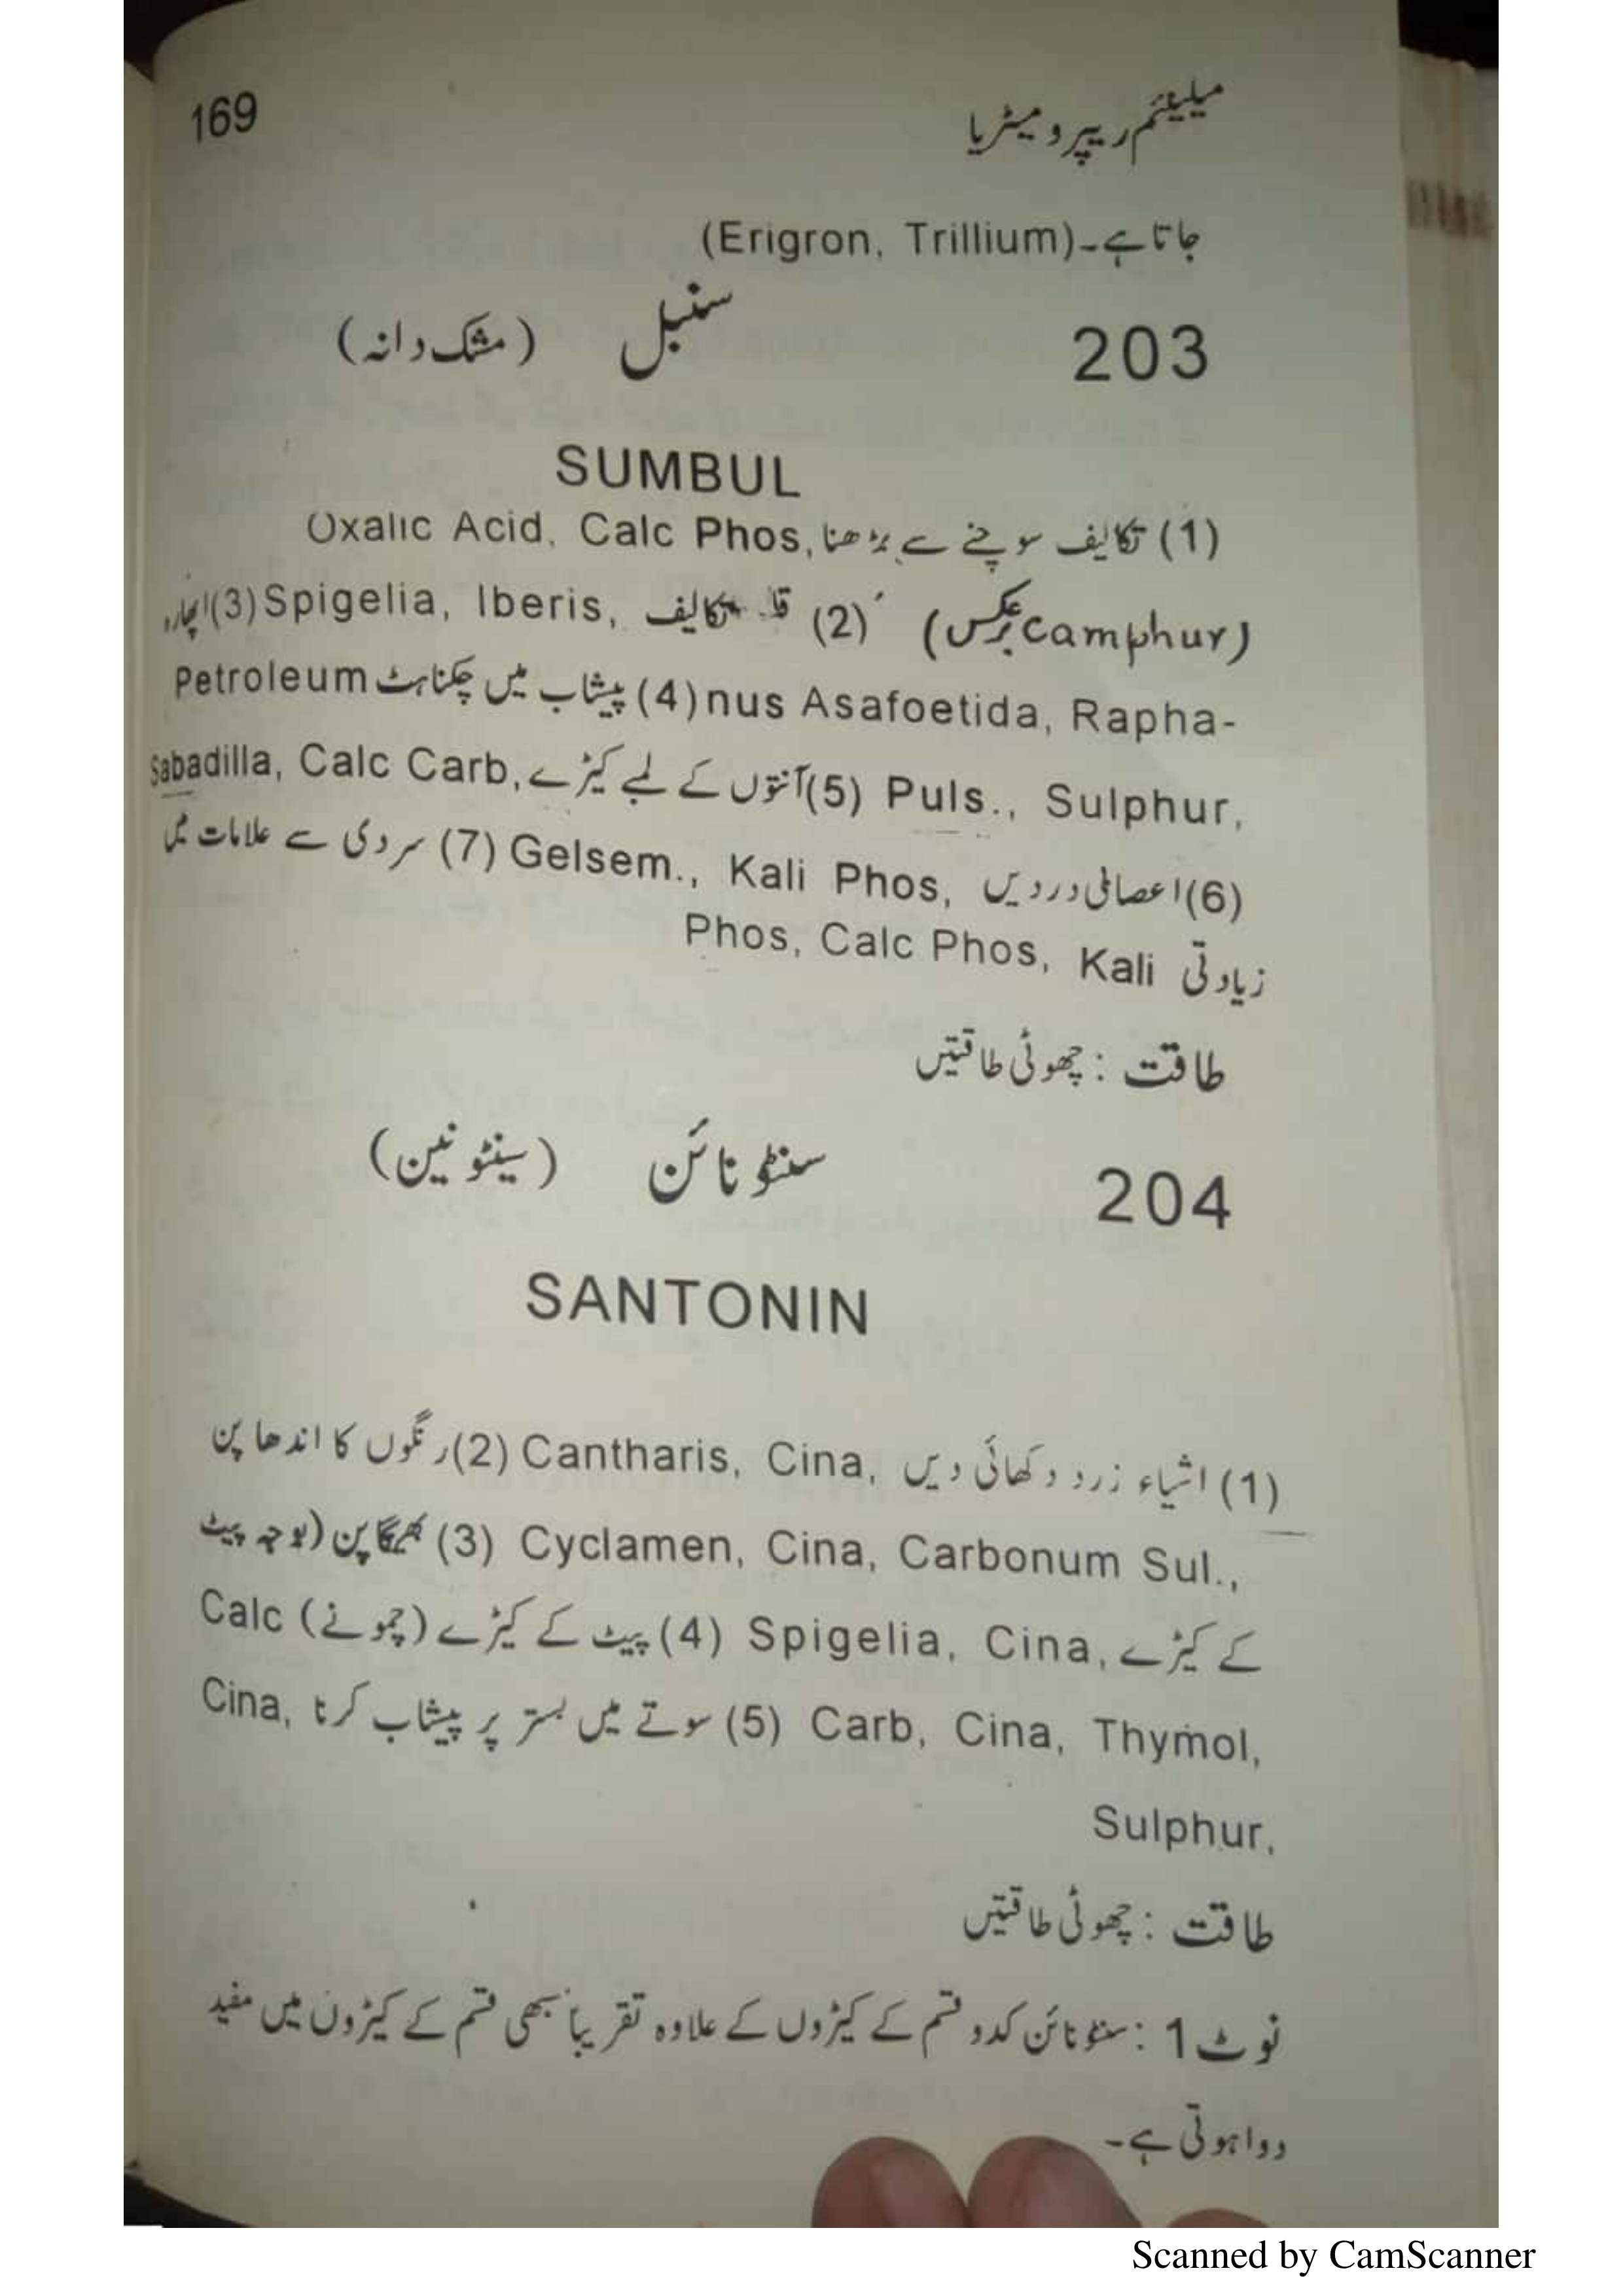 169
میلینئم ریپرو میٹریا
جاتا ہے۔(Erigron, Trillium)
203 سنبل (مشک دانہ)
SUMBUL
(1) تکالیف سوچنے سے بڑھنا Oxalic Acid, Calc Phos,
(camphur برعکس) (2) تکالیف Spigelia, Iberis, (3) اپھارہ
nus Asafoetida, Rapha- (4) پیشاب میں چکناہٹ Petroleum
Puls., Sulphur, (5) آنتوں کے لمبے کیڑے Sabadilla, Calc Carb,
(6) اعصابی دردیں Gelsem., Kali Phos, (7) سردی سے علامات میں
زیادتی Phos, Calc Phos, Kali
طاقت : چھوٹی طاقتیں
204 سنٹونائن (سینٹونین)
SANTONIN
(1) اشیاء زرد دکھائی دیں Cantharis, Cina, (2) رنگوں کا اندھا پن
Cyclamen, Cina, Carbonum Sul., (3) بھینگا پن (بوجہ پیٹ
کے کیڑے Spigelia, Cina, (4) پیٹ کے کیڑے (چمونے) Calc
Carb, Cina, Thymol, (5) سوتے میں بستر پر پیشاب کرنا Cina,
Sulphur,
طاقت : چھوٹی طاقتیں
نوٹ 1 : سنٹونائن کدو قسم کے کیڑوں کے علاوہ تقریباً سبھی قسم کے کیڑوں میں مفید
دوا ہوتی ہے۔
Scanned by CamScanner